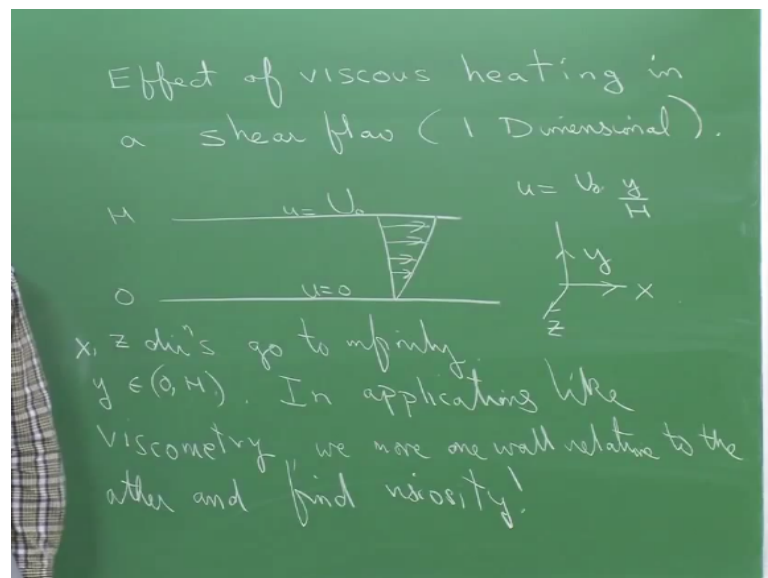 Effect of viscous heating in
a shear flow (1 Dimensional).
u = U₀ y/H
H u = U₀
y
x
z
0 u=0
x, z dirⁿs go to infinity
y ∈ (0, H). In applications like
viscometry we move one wall relative to the
other and find viscosity!